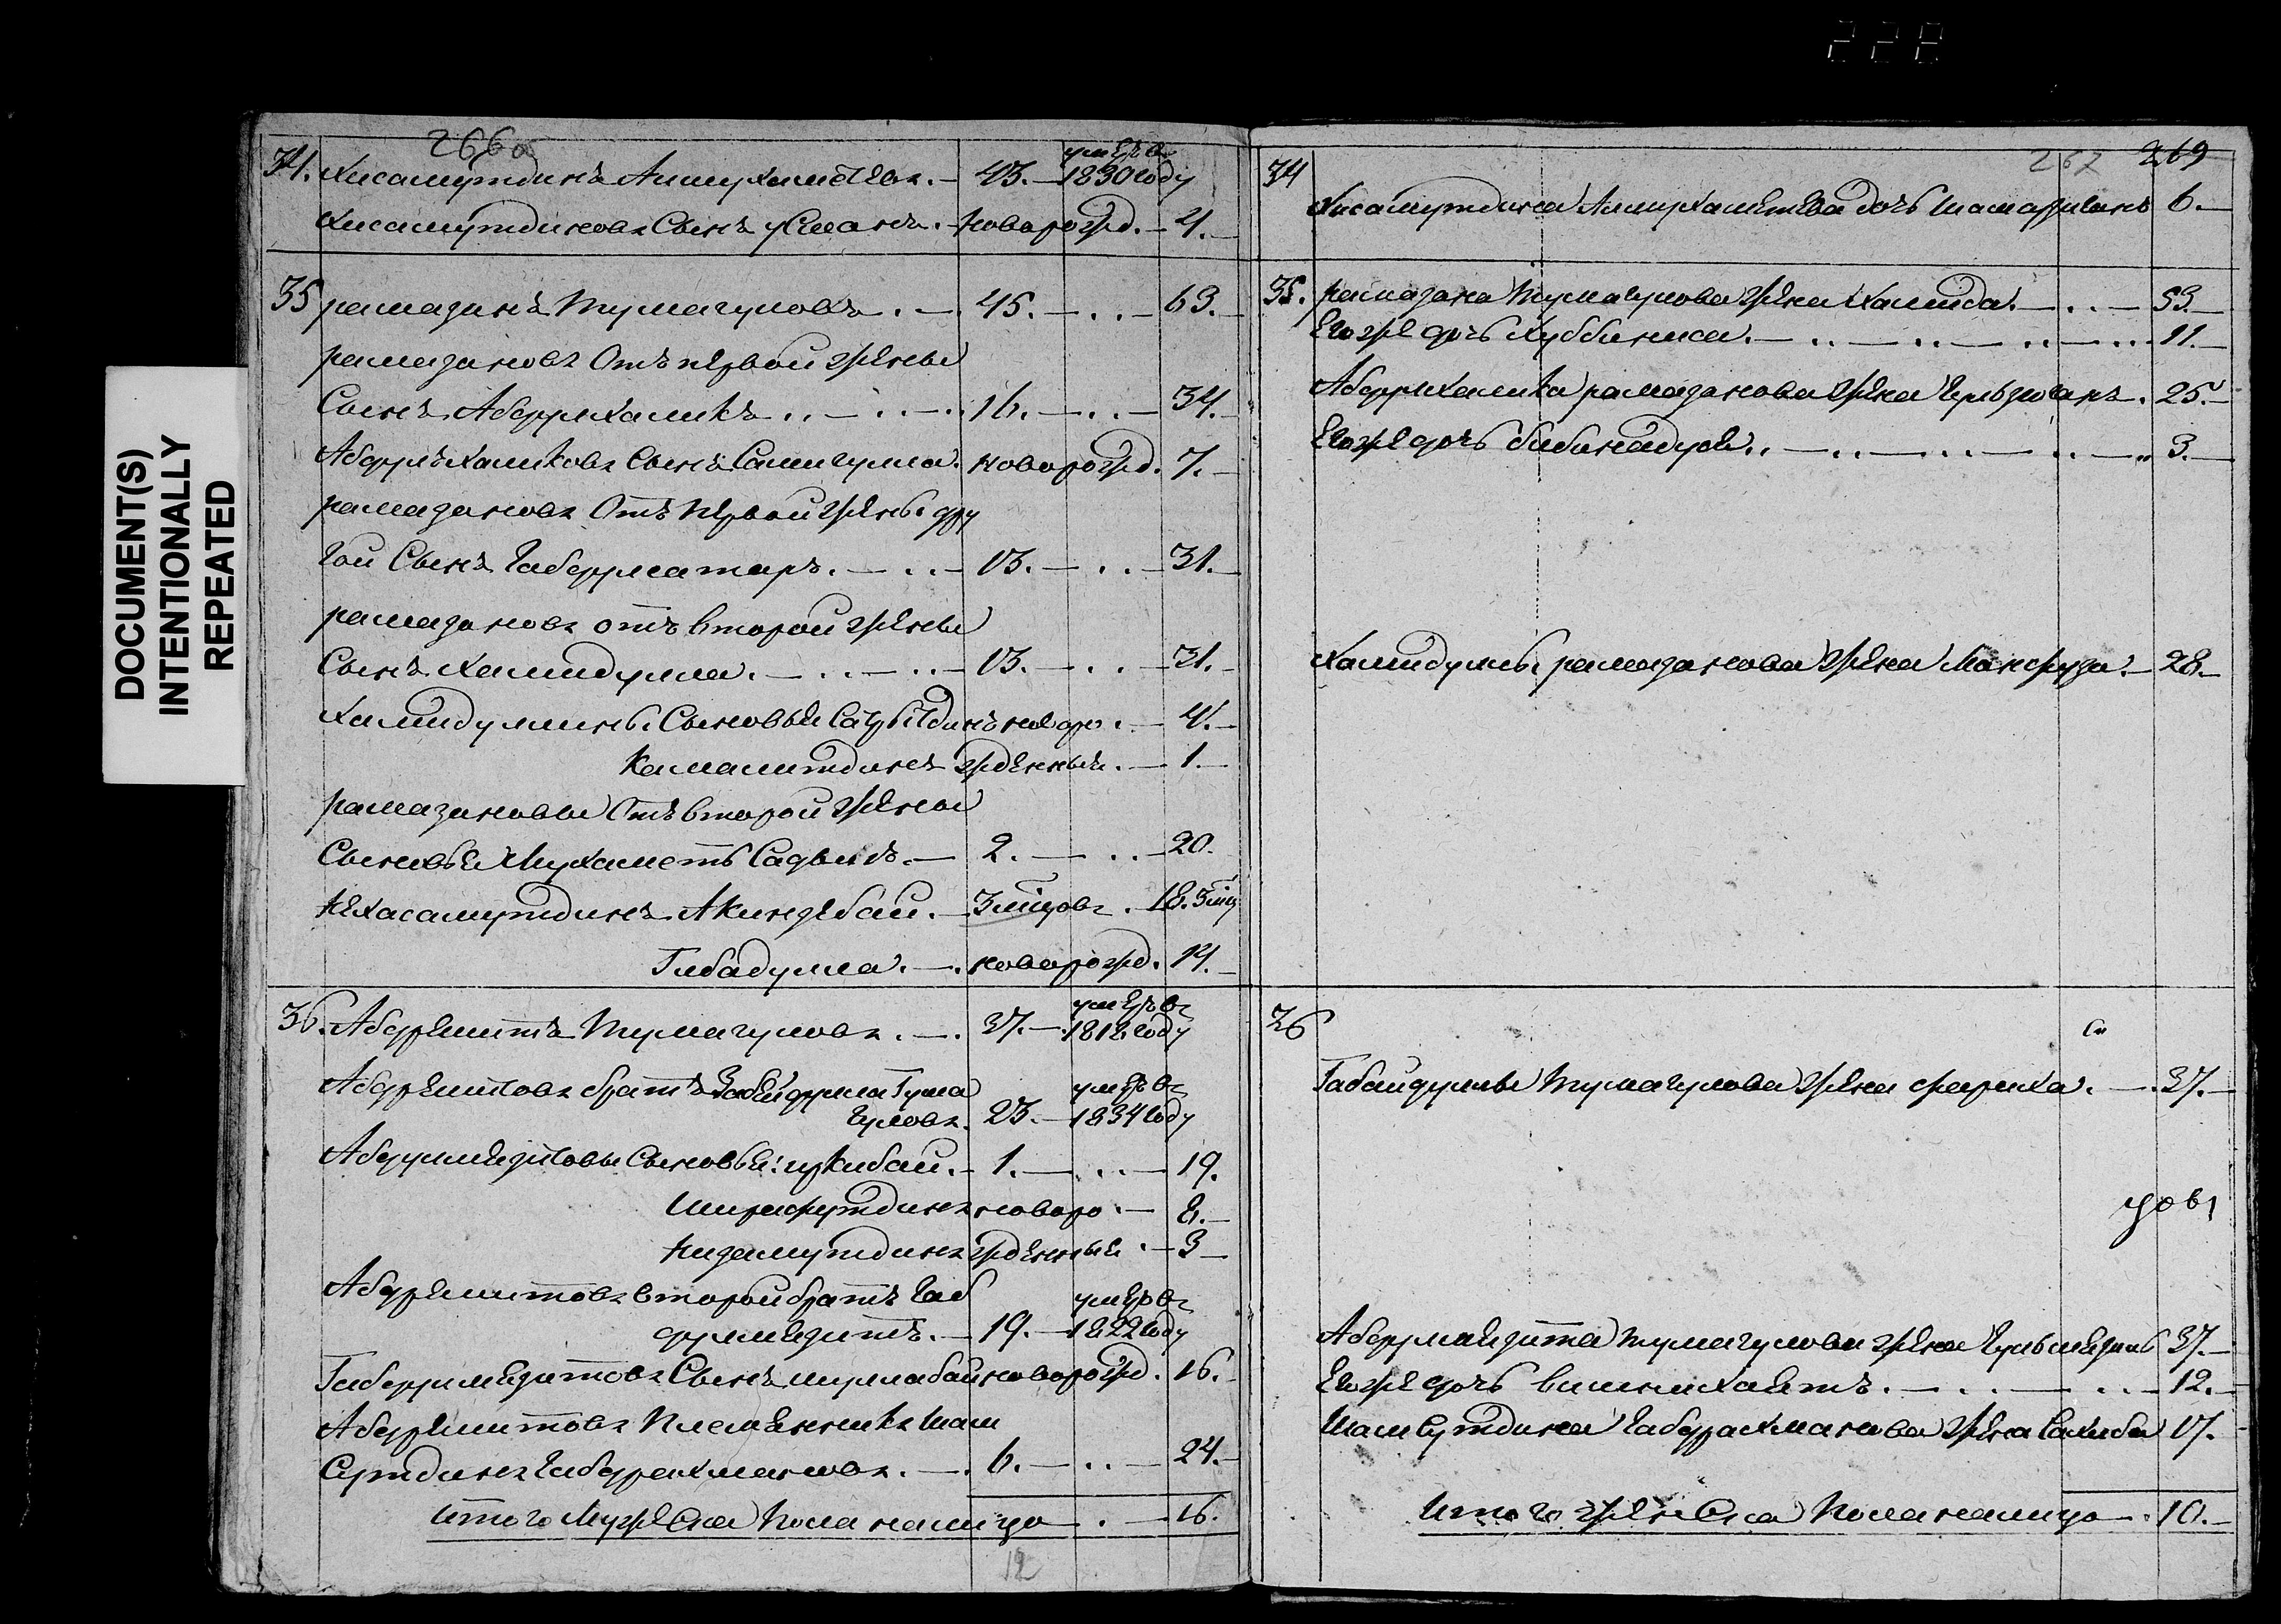 222
DOCUMENT(S)
INTENTIONALLY
REPEATED
266а
34. Хисамутдинъ Алмухаметевъ. 43. умеръ в 1830 году
Хисамутдиновъ Сынъ усманъ. новорожд. 4.
35 рамазанъ Тумагуловъ. 45. 63.
рамазановъ Отъ первой жены
Сынъ Абдулхаликъ 16. 34.
Абдулъхаликовъ Сынъ Самигулла. новорожд. 7.
рамазановъ Отъ первой жены дру
гой Сынъ Габдулсатаръ. 13. 31.
рамазановъ отъ второй жены
Сынъ Хамидулла. 13. 31.
Хамидуллины Сыновья новоро 4.
Камалитдинъ жденный. 1.
рамазановы Отъ второй жены
Сыновья Мухаметъ Садыкъ. 2. 20.
Акинзебай. 3 мцовъ. 18. 3 мц
Гибадулла. новорожд. 14.
36. Абдрешитъ Тумагуловъ. 37. умеръ въ 1818 году
Абдрешитовъ братъ Забейдулла Тума
гуловъ. 23. умеръ въ 1834 году
Сыновья: 1. 19.
Ширафутдинъ новоро 8.
Низамутдинъ жденный. 3
Абдрешитовъ второй братъ Габ
дулмезитъ. 19. умеръ въ 1822 году
Габдулмезитовъ Сынъ нурлабай новорожд. 16.
Абдрешитовъ Племянникъ Шам
Сутдинъ Габдрахмановъ. 6. 24.
итого Мужеска Пола налицо 16.
12
267 269
34 Хисамутдина Алмухаметева дочь 6.
35. рамазана Тумагулова жена Хамида. 53.
Егоже дочь Хуббиниса. 11.
Абдулхалика рамазанова жена 25.
Егоже дочь 3.
Хамидуллы рамазанова жена Махфуза. 28.
36
Габайдуллы Тумагулова жена фариха. 37.
Абдулмезита Тумагулова жена 37.
Егоже дочь 12.
Шамсутдина Габдрахманова жена Сахиба 17.
Итого женска Пола налицо 10.